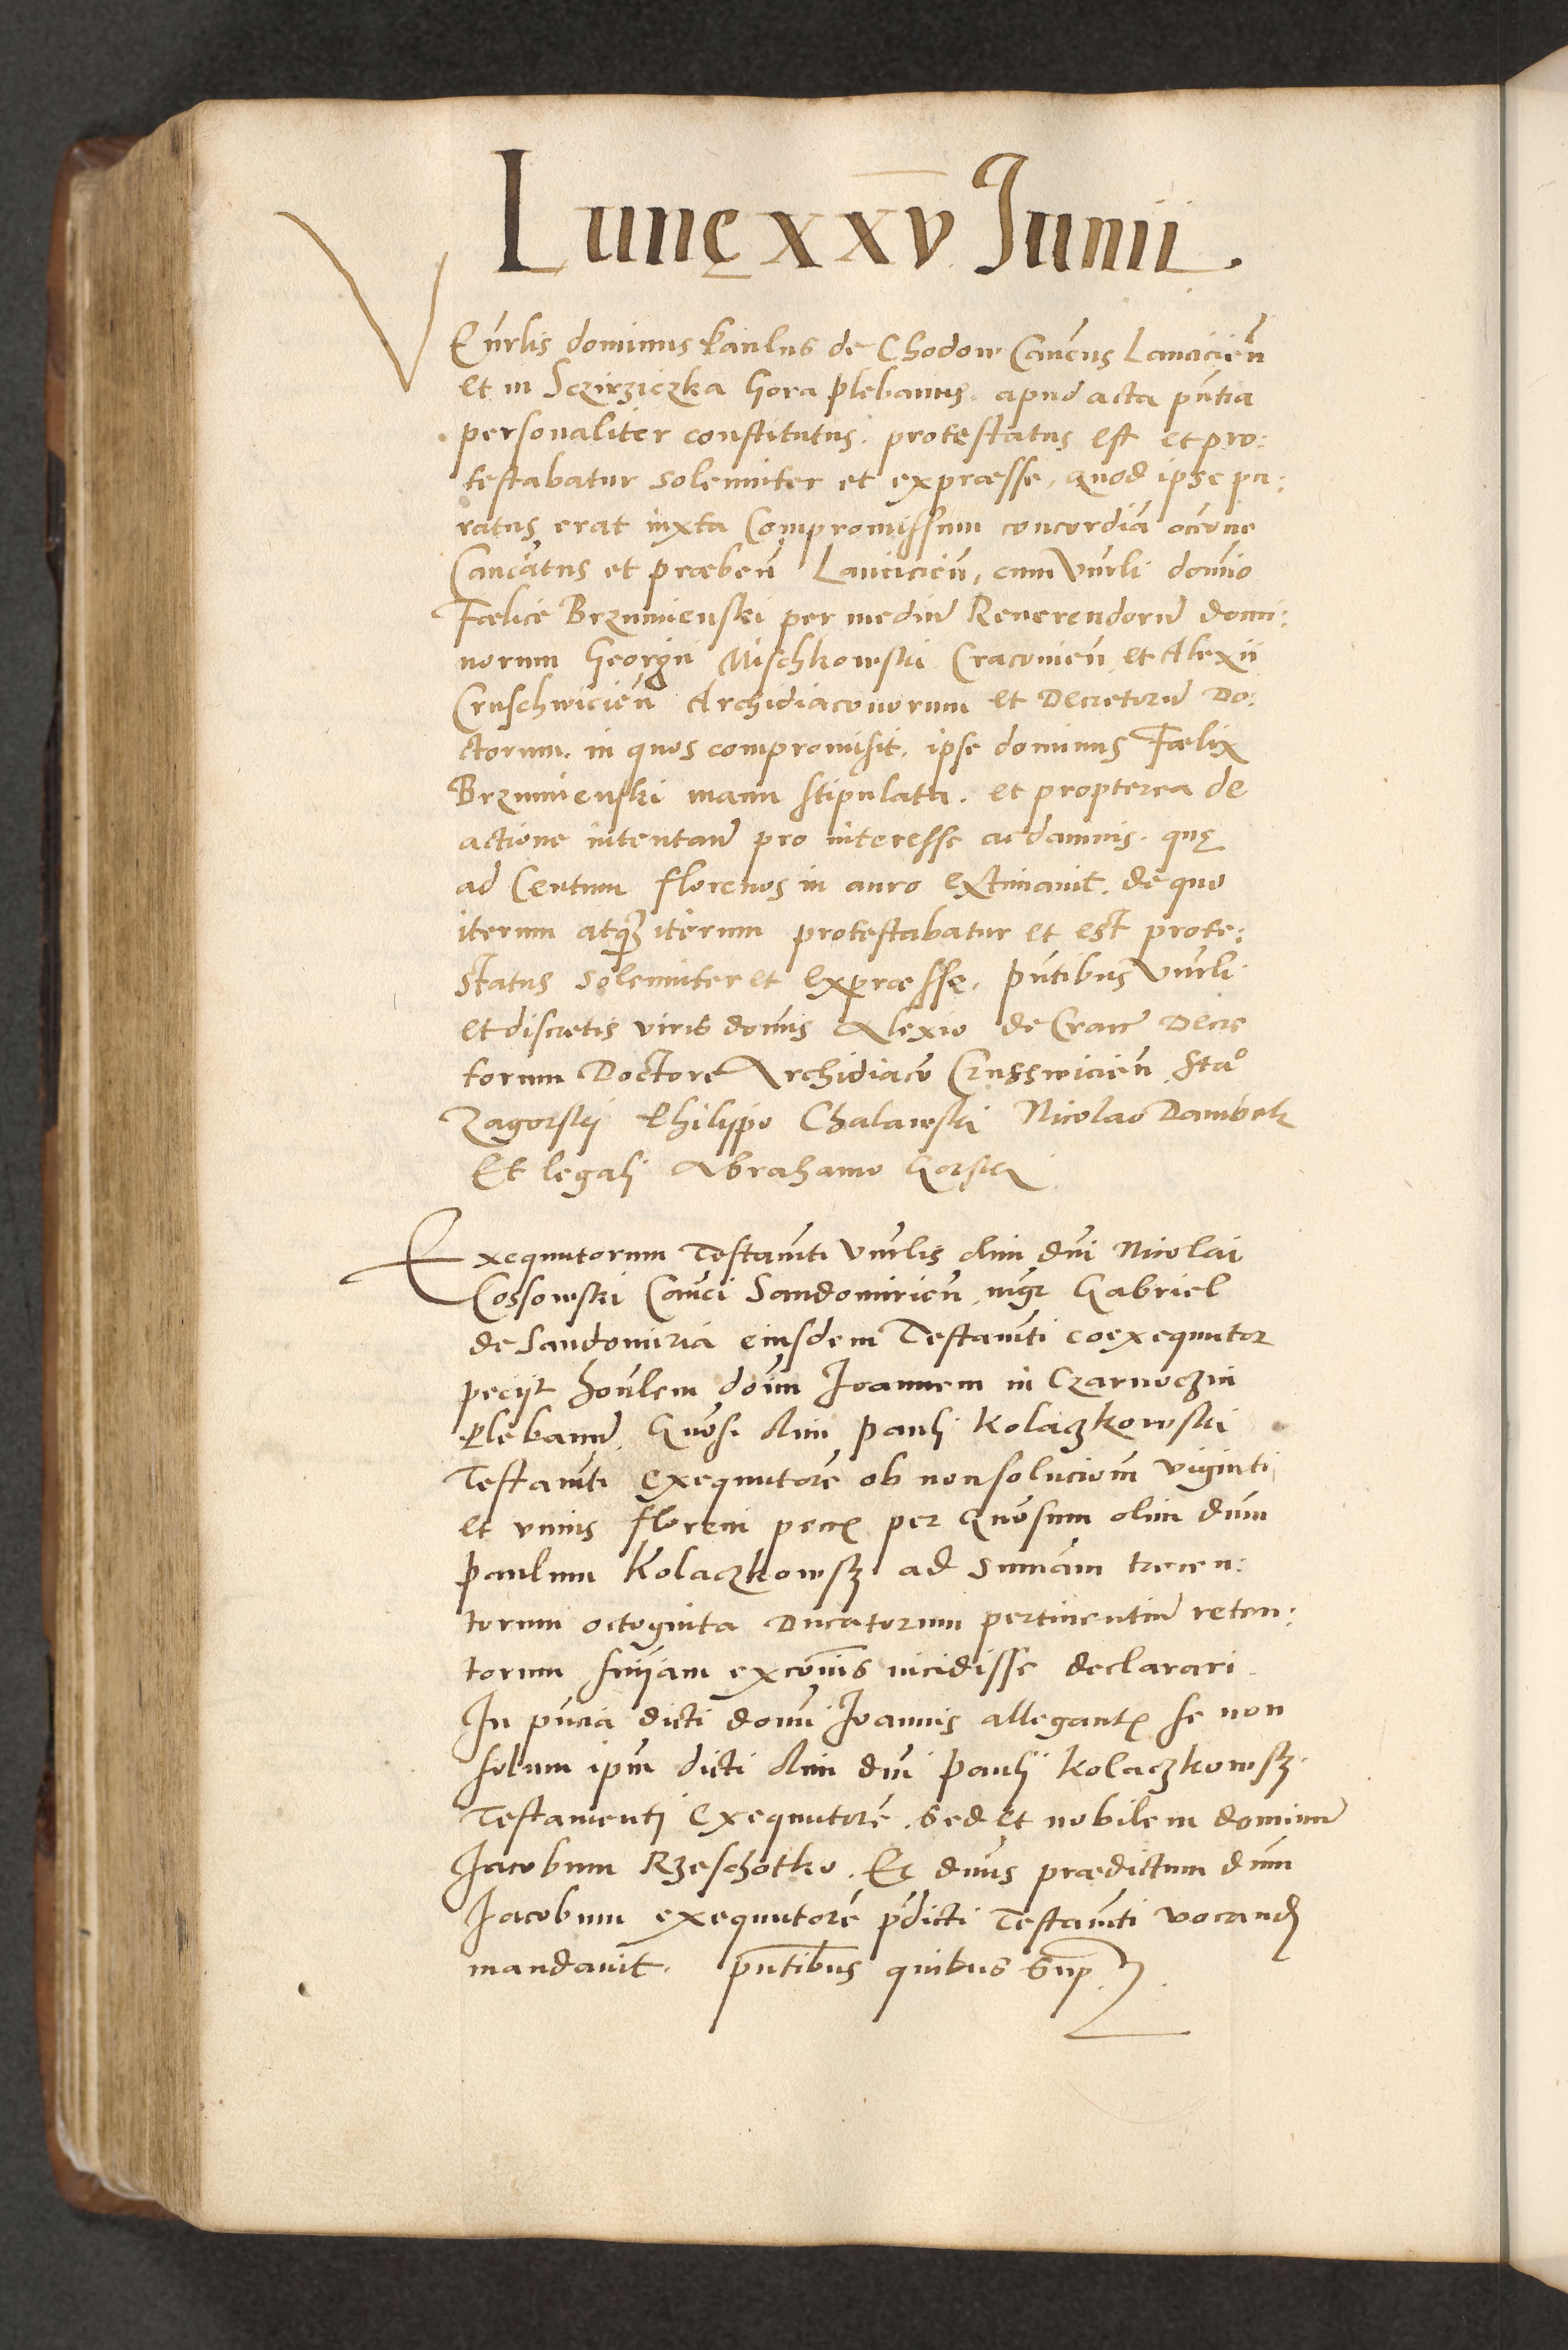 Lunę xxv Junii
Venrlis dominus Paulus de Chodow Canõcus Lancicieñ
et in Sczirziczka Gora plebanus. apud acta pñtia
personaliter constitutus. protestatus est et pro:
testabatur solenniter et expræsse, quod ipse pa:
ratus erat iuxta Compromissum concordia
Cancãtus et præbeñ Lancicieñ, cum Vnrli domĩo
Fœlicẽ Brzuminski per mediũ Reuerendorũ domi:
norum Georgii Mischkowski Cracovieñ et Alexii
Cruschwicieñ Archidiaconorum et Decretorũ Do:
ctorum. in quos compromisit. ipse dominus Fœlix
Brzumienski manu stipulata. et propterea de
actione intentañ pro interesse ac damnis. quę
ad Centum florenos in auro extimauit. de quo
iterum atqȝ iterum protestabatur et est prote:
status solenniter et Expræsse. pñtibus Vnrli
et discretis viris domĩs Alexio de Cracõ Decre
torum Doctore Archidiacõ Crusswicieñ Sta°
Zagorskij Philippo Chalawski Nicolao Dambek
Et legalj Abrahamo Gorskj
Exequutorum Testamti Vnrlis olim dni Nicolai
Cossowski Canci Sandomirieñ mgr Gabriel
de Sandomiria eiusdem Testamti coexequutor
peciit honlem doim Joannem in Czarnoczin
Plebanũ, Gnõsi olim Paulj Kolaczkowski
Testamti Exequutorẽ ob non solucionem viginti
et vnius florenj pecȩ per Gnõsum olim dnm
Paulum Kolaczkowsȝ ad sumãm trecen:
torum octoginta Ducatorum pertinentiũ reten:
torum snyam excõnis incidisse declarari.
In pñcia dicti domi Joannis allegantȩ se non
solum ipm dicti olim dni Paulj Kolaczkowsȝ
Testamentj Exequutorẽ. sed et nobilem dominũ
Jacobum Rzeschotko. Et dnus prædictum dnm
Jacobum exequutorẽ pdicti Testamti vocandũ
mandauit. pñtibus quibus sup̃